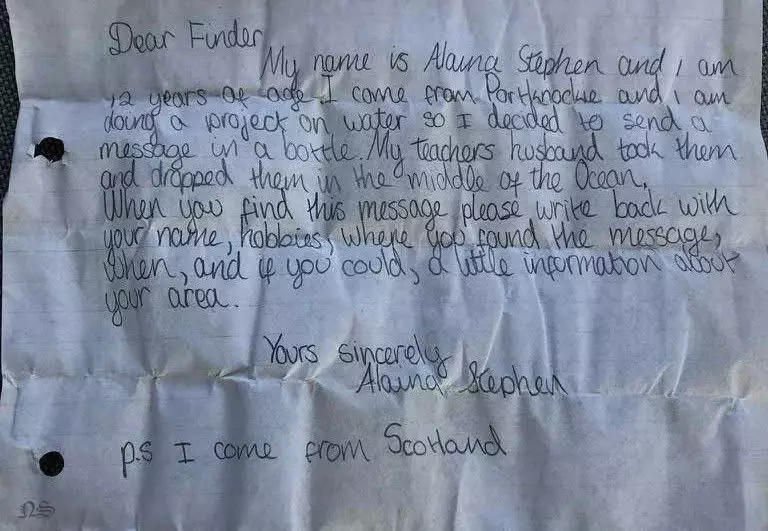 Dear Finder
My name is Alaina Stephen and i am
12 years of age I come from Portknockie and i am
doing a project on water so I decided to send a
message in a bottle. My teachers husband took them
and dropped them in the middle of the Ocean.
When you find this message please write back with
your name, hobbies, where you found the message,
when, and if you could, a little information about
your area.
Yours sincerely
Alaina Stephen
p.s I come from Scotland
NS